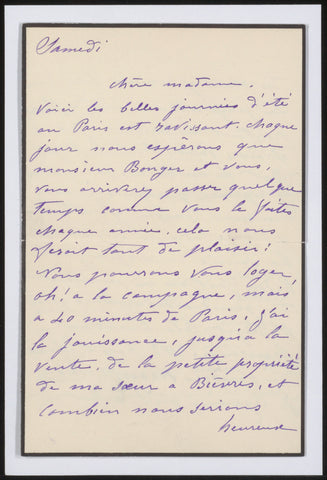 Samedi
chère madame,
Voici les belles journées d'été
ou Paris est ravissant. chaque
jour nous espérons que
monsieur Bonger et vous,
vous arriverez passer quelque
temps comme vous le faites
chaque année, cela nous
ferait tant de plaisir!
Nous pouvons vous loger,
oh! a la campagne, mais
a 40 minutes de Paris, j'ai
la jouissance, jusqu'a la
vente, de la petite propriété
de ma sœur a Bièvres, et
combien nous serions
heureux